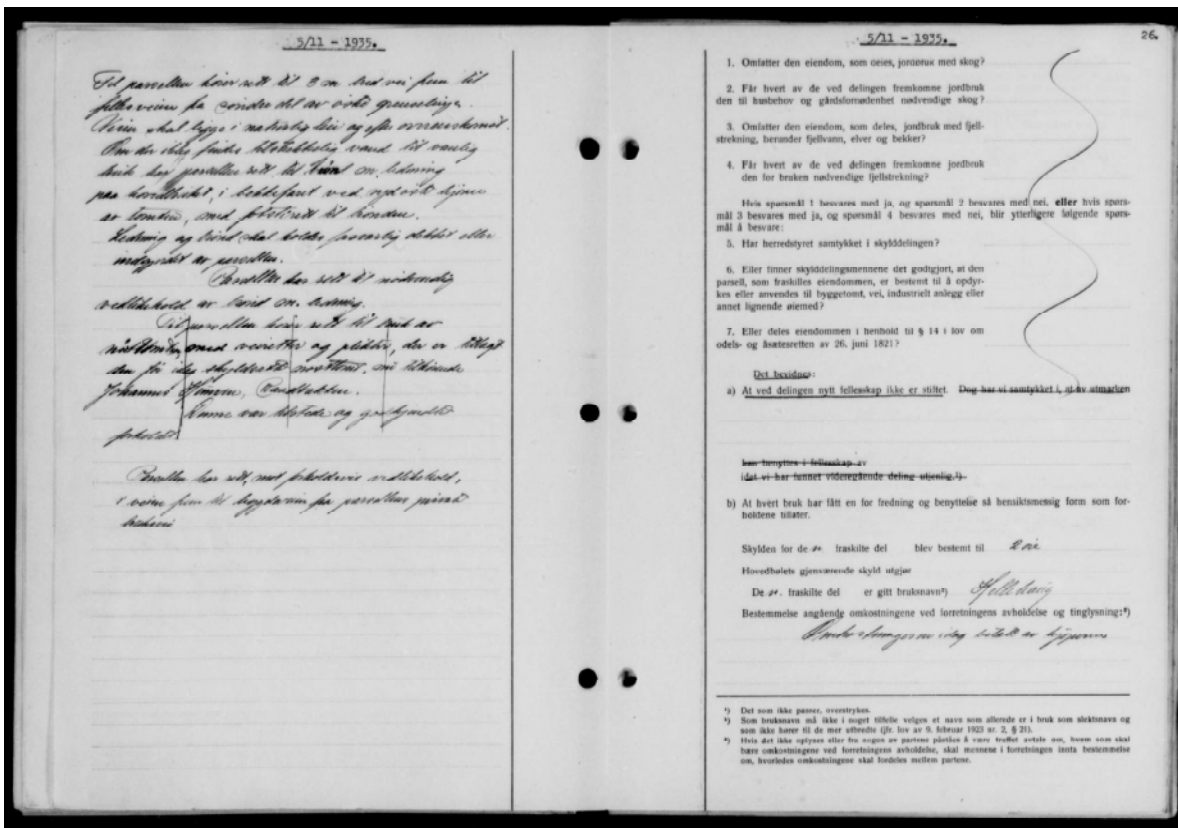 5/11 - 1935.
Til parsellen hører rett til 3 m. bred vei frem til
fellesveien fra søndre del av østre grenselinje.
Veien skal ligge i naturlig leie og efter overenskomst.
Om der ikke finnes tilstrekkelig vand til vanlig
bruk har parsellen rett til brønd m. ledning
paa hovedbruket, i
av tomten, med
Ledning og brønd skal holdes forsvarlig dekket eller
indgjerdet av parsellen.
Parsellen har rett til nødvendig
vedlikehold av brønd m. ledning.
Til parsellen hører rett til bruk av
med veiretter og plikter, der er tillagt
den fra idag skylddelte tilhørende
Johannes
var tilstede og godkjendte
forholdet.
Parsellen har rett, mot forholdsvis vedlikehold,
i veien frem til bygdeveien for parsellens private
behov
5/11 - 1935.
26.
1. Omfatter den eiendom, som deles, jordbruk med skog?
2. Får hvert av de ved delingen fremkomne jordbruk
den til husbehov og gårdsfornødenhet nødvendige skog?
3. Omfatter den eiendom, som deles, jordbruk med fjell-
strekning, herunder fjellvann, elver og bekker?
4. Får hvert av de ved delingen fremkomne jordbruk
den for bruken nødvendige fjellstrekning?
Hvis spørsmål 1 besvares med ja, og spørsmål 2 besvares med nei, eller hvis spørs-
mål 3 besvares med ja, og spørsmål 4 besvares med nei, blir ytterligere følgende spørs-
mål å besvare:
5. Har herredstyret samtykket i skylddelingen?
6. Eller finner skylddelingsmennene det godtgjort, at den
parsell, som fraskilles eiendommen, er bestemt til å opdyr-
kes eller anvendes til byggetomt, vei, industrielt anlegg eller
annet lignende øiemed?
7. Eller deles eiendommen i henhold til § 14 i lov om
odels- og åsætesretten av 26. juni 1821?
Det bevidnes:
a) At ved delingen nytt fellesskap ikke er stiftet. Dog har vi samtykket i, at av utmarken
kan benyttes i fellesskap av
idet vi har funnet videregående deling utjenlig.¹)
b) At hvert bruk har fått en for fredning og benyttelse så hensiktsmessig form som for-
holdene tillater.
Skylden for de n. fraskilte del blev bestemt til 2 øre
Hovedbølets gjenværende skyld utgjør
De n. fraskilte del er gitt bruksnavn²)
Bestemmelse angående omkostningene ved forretningens avholdelse og tinglysning:³)
Omkostningene idag betalt av kjøperen
¹) Det som ikke passer, overstrykes.
²) Som bruksnavn må ikke i noget tilfelle velges et navn som allerede er i bruk som slektsnavn og
som ikke hører til de mer utbredte (jfr. lov av 9. februar 1923 nr. 2, § 21).
³) Hvis det ikke oplyses eller fra nogen av partene påståes å være truffet avtale om, hvem som skal
bære omkostningene ved forretningens avholdelse, skal mennene i forretningen innta bestemmelse
om, hvorledes omkostningene skal fordeles mellem partene.